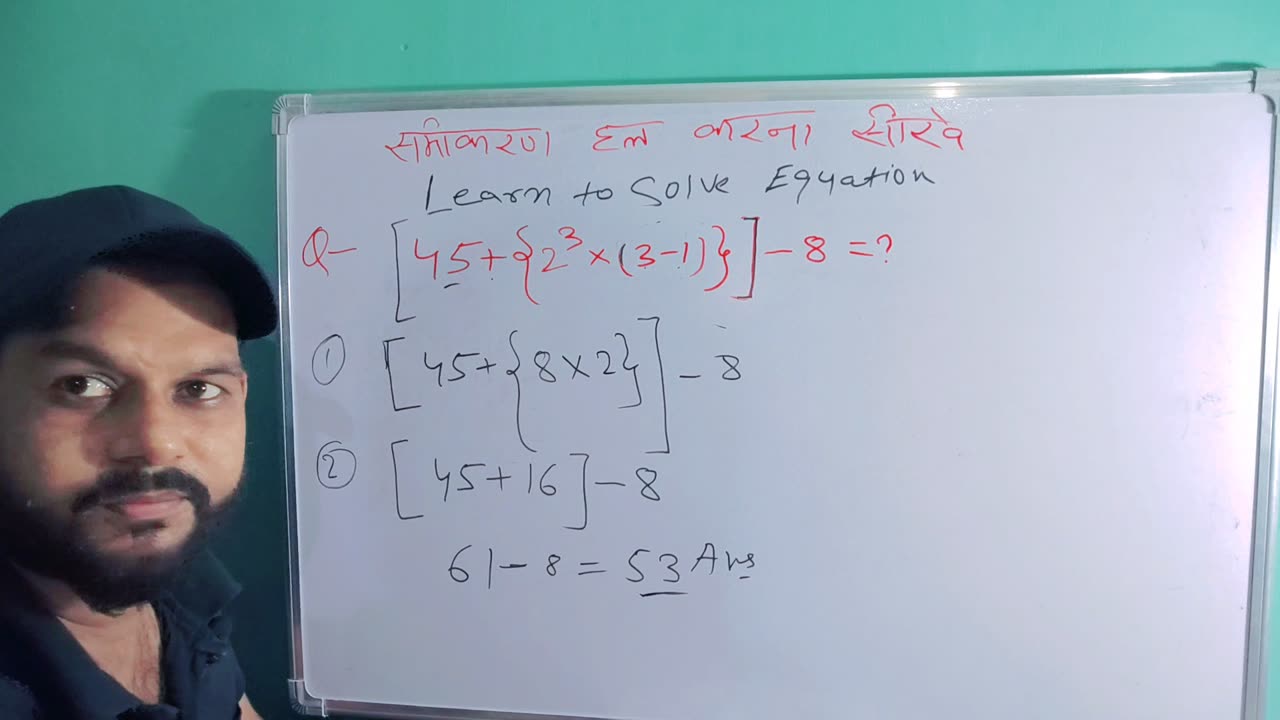 समीकरण हल करना सीखे
Learn to Solve Equation
Q- [45+{2³×(3-1)}]-8=?
① [45+{8×2}]-8
② [45+16]-8
61-8=53 Ans